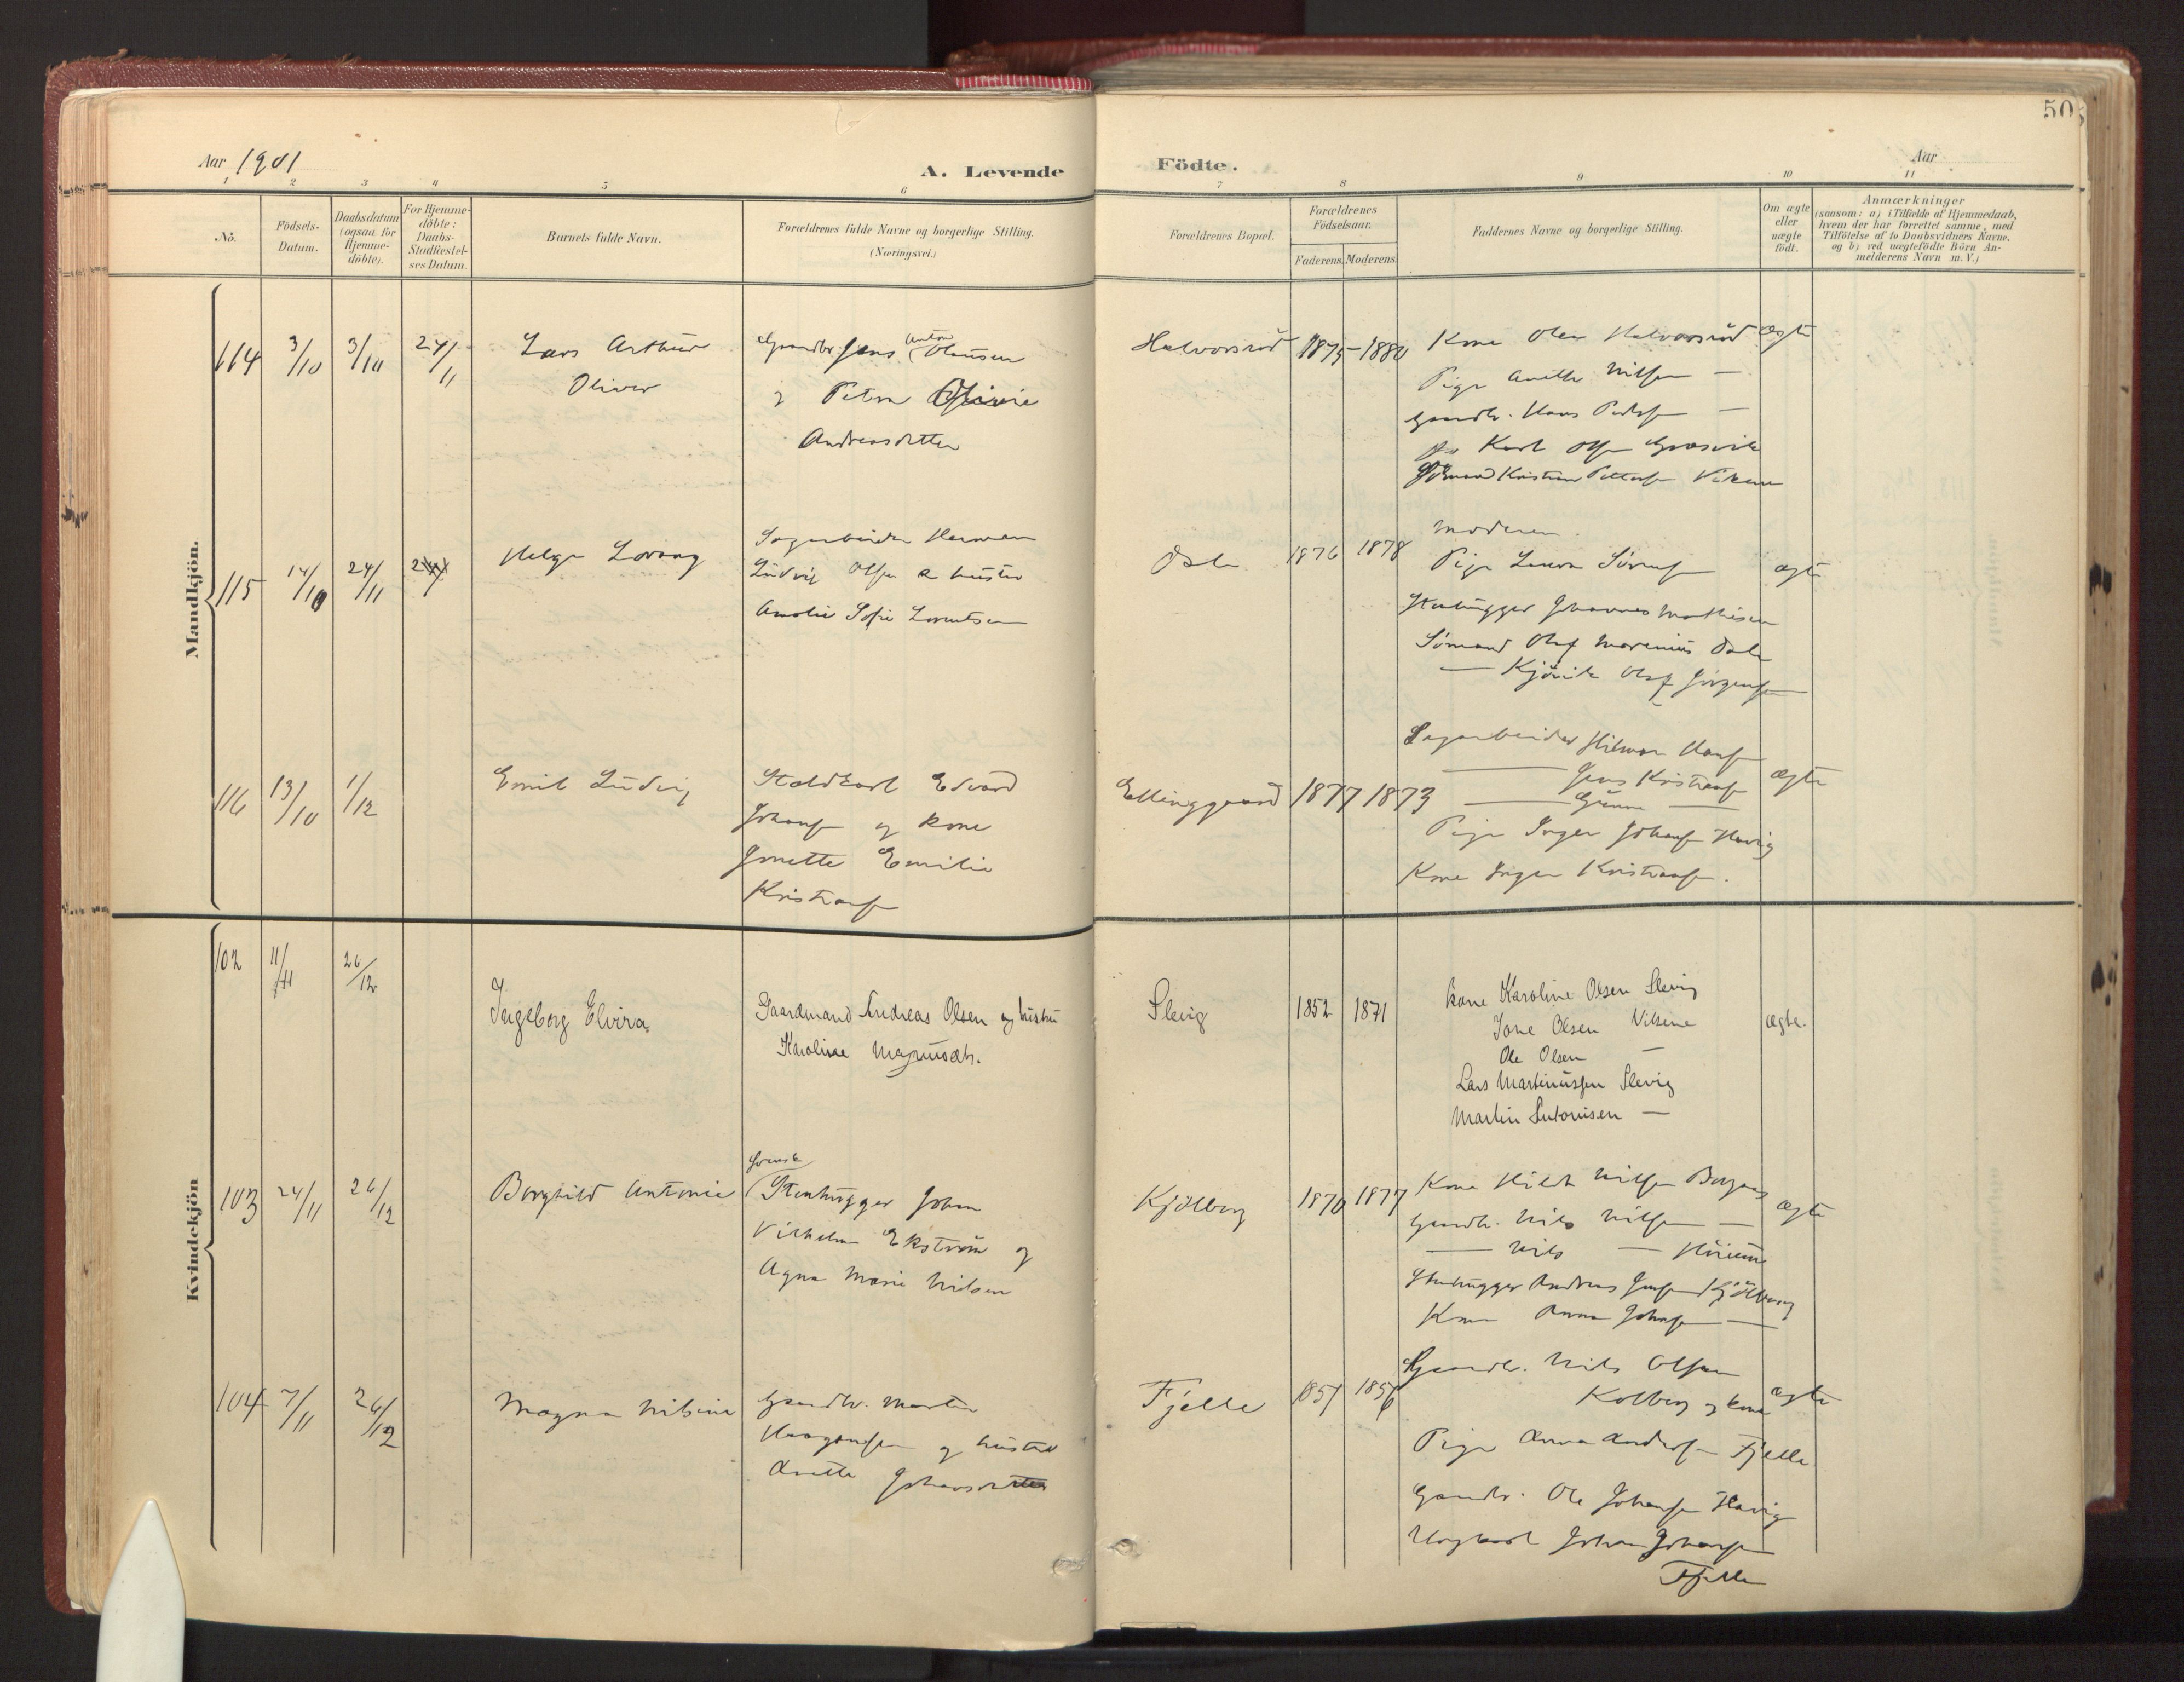 50
Aar 1901
A. Levende
Födte.
Aar
1 2 3 4 5 6 7 8 9 10 11
No.
Födsels-
Datum.
Daabsdatum
(ogsaa for
Hjemme-
döbte).
For Hjemme-
döbte:
Daabs-
Stadfæstel-
ses Datum.
Barnets fulde Navn.
Forældrenes fulde Navne og borgerlige Stilling.
(Næringsvei.)
Forældrenes Bopæl.
Forældrenes
Födselsaar.
Faderens. Moderens.
Faddernes Navne og borgerlige Stilling.
Om ægte
eller
uægte
födt.
Anmærkninger
(saasom: a) i Tilfælde af Hjemmedaab,
hvem der har forrettet samme, med
Tilföielse af to Daabsvidners Navne,
og b) ved uægtefödte Börn An-
melderens Navn m. V.)
Mandkjön.
114 3/10 3/10 24/11
Lars Arthur
Oliver
Gaardbr. Jens Anton Olausen
og Petra
Andreasdatter
Halvorsröd 1875 1880
Kone Olea Halvorsröd
Pige Anette Nilsen —
Gaardbr. Hans —
Karl Olsen Græsvik
Sömand Kristian Pettersen Vikene
ægte
115 14/10 24/11
Helge Lorang
Sagarbeider Herman
Ludvig Olsen & hustru
Amalie Sofie Lorentsen
Dale 1876 1878
Moderen.
Pige Laura Sörensen
Stenhugger Johannes Mathisen
Sömand Olaf Marenius Dale
— Kjövik Olaf Jörgensen
ægte
116 13/10 1/12
Emil Ludvig
Staldkarl Edvard
Johansen og kone
Jonette Emilie
Kristiansen
Ellinggaard 1877 1873
Sagarbeider Hilmar Hansen
— Jens Kristiansen
— Gunner —
Pige Inger Johansen Hauig
Kone Inger Kristiansen.
ægte
Kvindekjön
102 11/11 26/12
Ingeborg Elvira
Gaardmand Andreas Olsen og hustru
Karoline Magnusdtr.
Slevig 1852 1871
Kone Karoline Olsen Slevig
Jone Olsen Vikene
Ole Olsen —
Lars Martinussen Slevig
Martin Antonisen —
ægte.
103 24/11 26/12
Borghild Antonie
Svensk
Stenhugger Johan
Vilhelm Ekström og
Agna Marie Nilsen
Kjölberg 1870 1877
Kone Hilda Nilsen Borgaas
Gaardbr. Nils Nilsen —
— Nils —
Stenhugger Andreas Jensen Kjölberg
Kone Anna Johansen —
ægte
104 7/11 26/12
Magna Nilsine
Gaardbr. Martin
Haagensen og hustru
Anette Johansdatter
Fjelle 1857 1856
Gaardbr. Nils Olsen
Kolberg og kone
Pige Anna Andersen Fjelle
Gaardbr. Ole Johansen Hauig
Ungkarl Johan Johansen
Fjelle
ægte